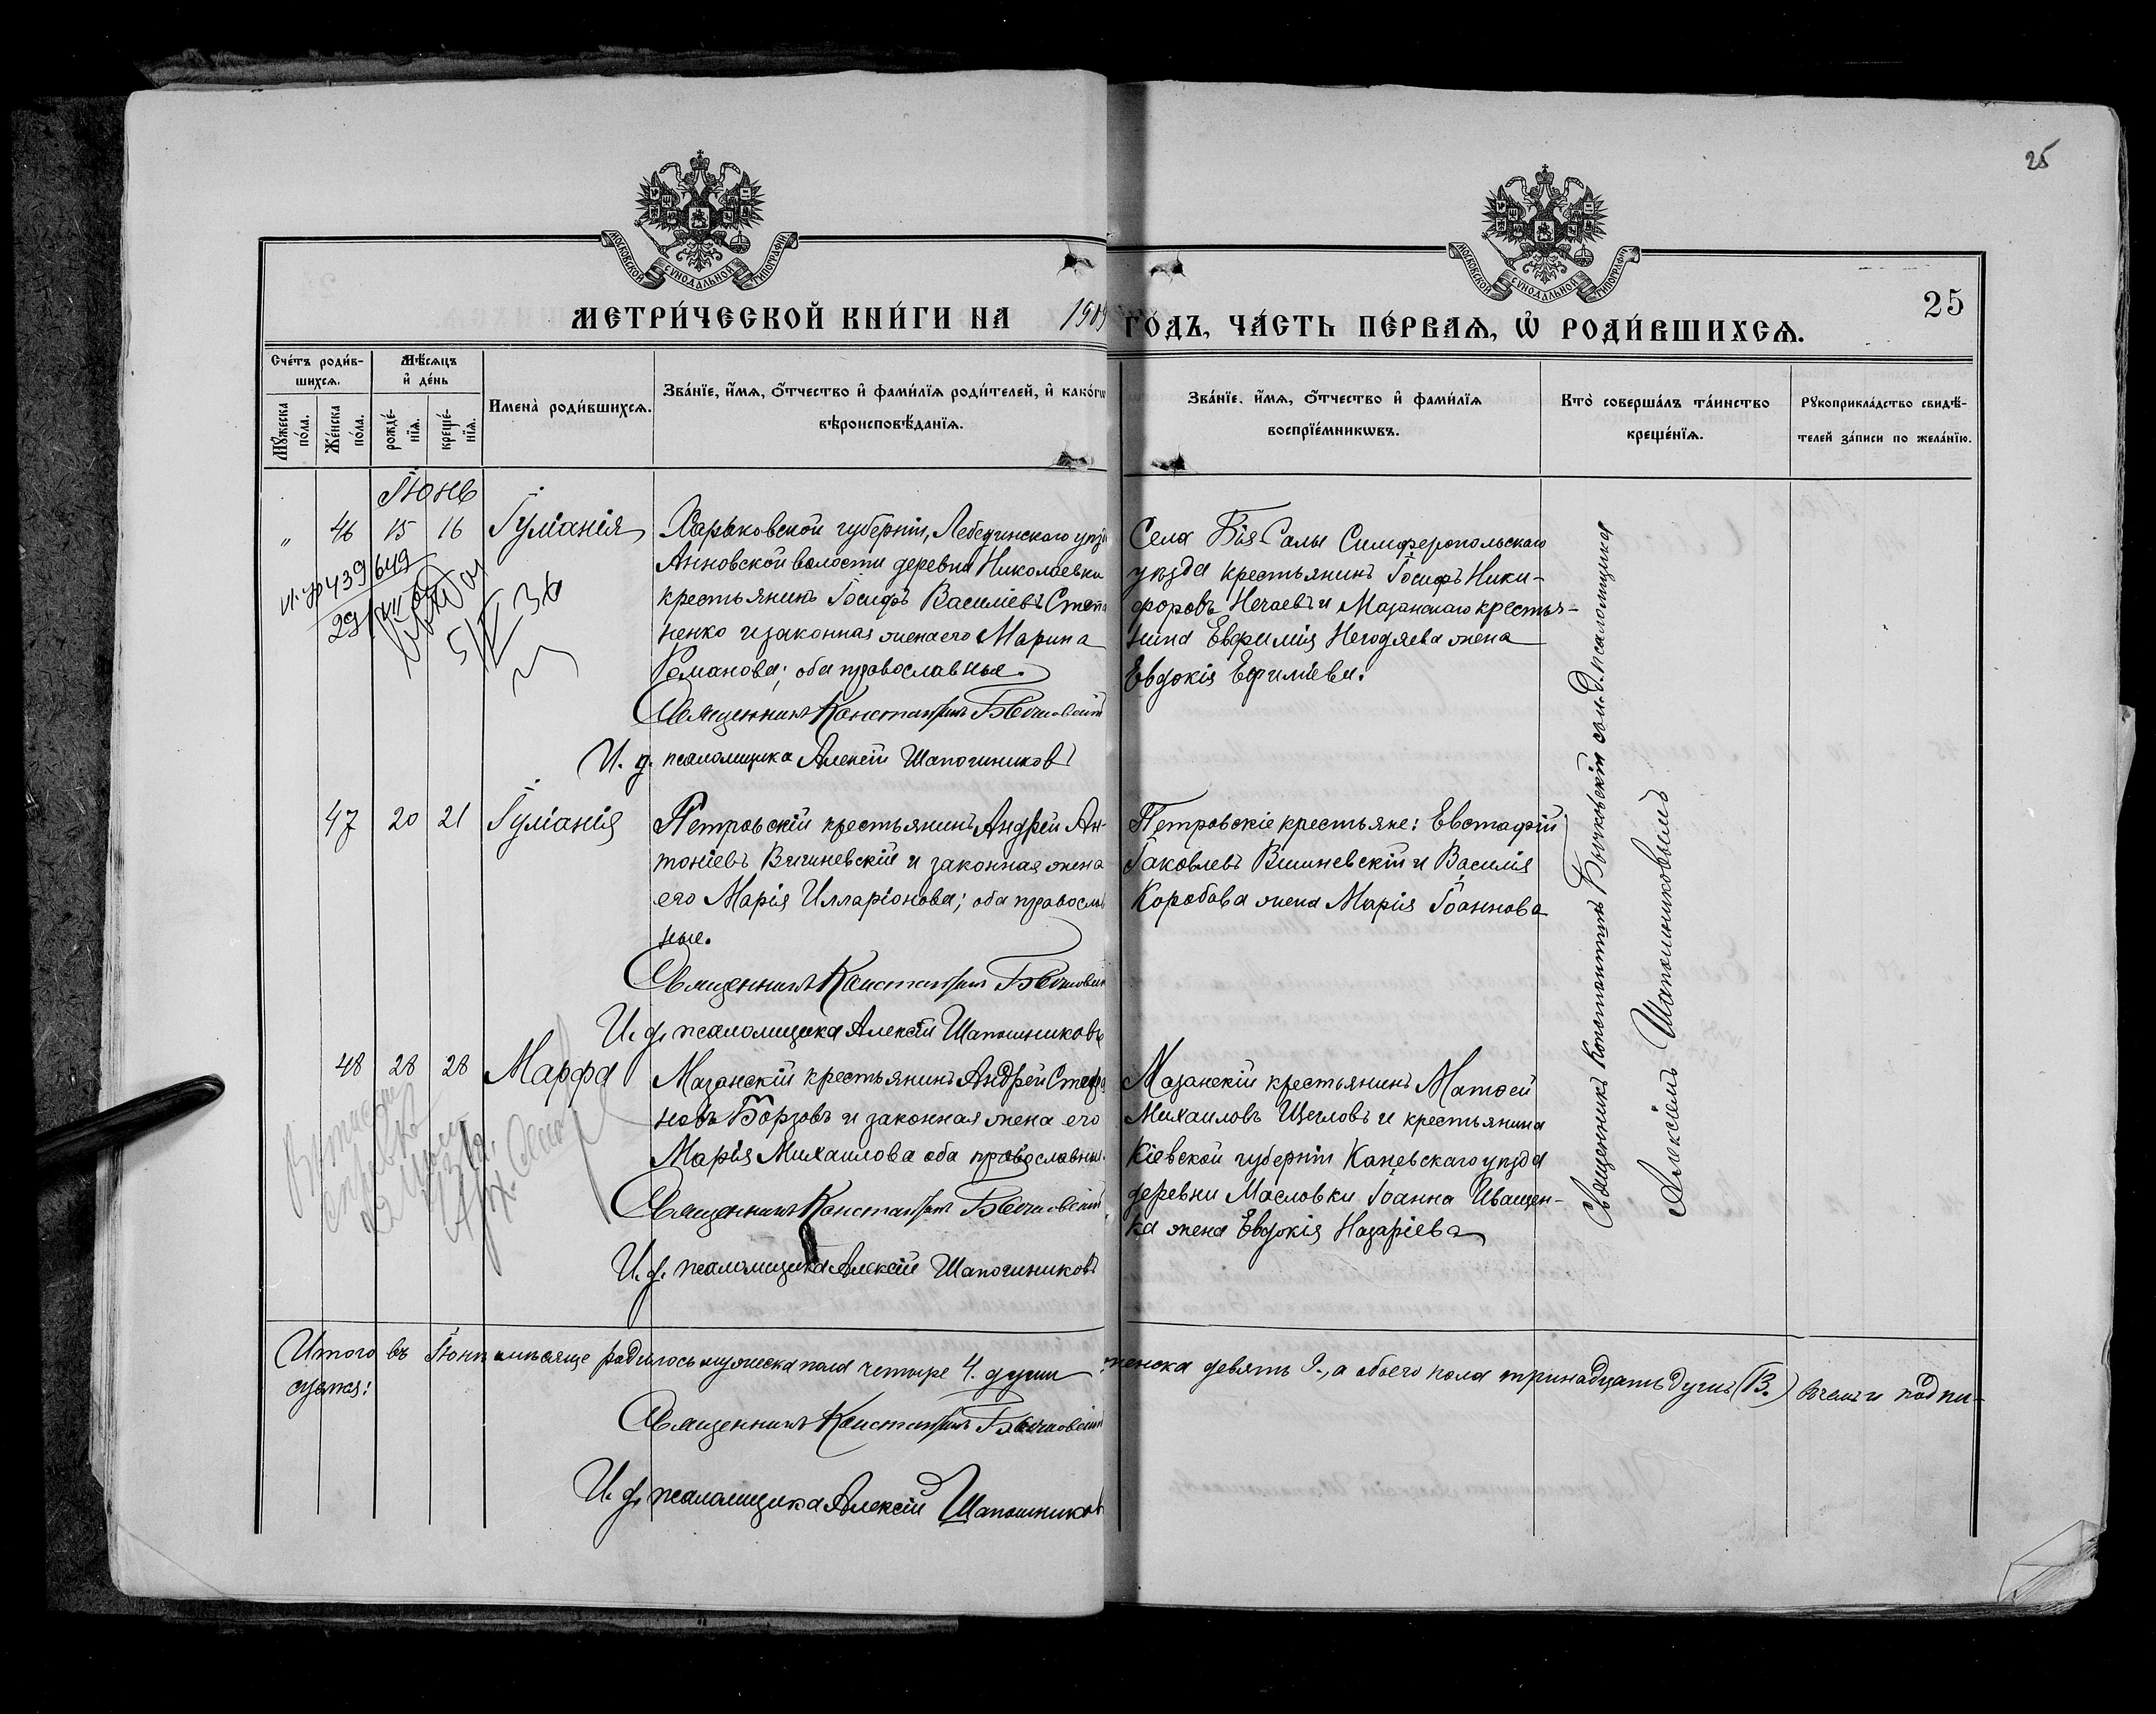 25
МОСКОВСКОЙ СѴНОДАЛЬНОЙ ТИПОГРАФІИ
МОСКОВСКОЙ СѴНОДАЛЬНОЙ ТИПОГРАФІИ
МЕТРИ́ЧЕСКОЙ КНИ́ГИ НА 1909 ГО́ДЪ, ЧА́СТЬ ПЕ́РВАѦ, Ѡ РОДИ́ВШИХСѦ.
25
Сче́тъ роди́в-
шихсѧ.
Мꙋ́жеска по́ла.
Же́нска по́ла.
Мѣ́сѧцъ
и҆ де́нь
рожде́-
нїѧ.
креще́-
нїѧ.
Имена̀ роди́вшихсѧ.
Зва́нїе, и҆́мѧ, ѻ҆́тчество и҆ фами́лїѧ роди́телей, и҆ како́гѡ
вѣроисповѣ́данїѧ.
Зва́нїе, и҆́мѧ, ѻ҆́тчество и҆ фами́лїѧ
воспрїе́мникѡвъ.
Кто̀ соверша́лъ та́инство
креще́нїѧ.
Рꙋкоприкла́дство свидѣ́-
телей за́писи по жела́нїю.
Іюнь
" 46 15 16 Іуліанія
Харьковской губерніи, Лебединскаго уѣзда
Анновской волости деревни Николаевки
крестьянинъ Іосифъ Василіевъ Степа
ненко и законная жена его Марина
Романова; оба православные.
Священникъ Константинъ Бычковскій
И. д. псаломщика Алексій Шапошниковъ
Села Бія-Салы Симферопольскаго
уѣзда крестьянинъ Іосифъ Ники-
форовъ Нечаевъ и Мазанскаго крестья-
нина Евфимія Негодяева жена
Евдокія Ефиміева.
439649
5/V 36
47 20 21 Іуліанія
Петровскій крестьянинъ Андрей Ан-
тоніевъ Вишневскій и законная жена
его Марія Илларіонова; оба православ
ные.
Священникъ Константинъ Бычковскій
И. д. псаломщика Алексій Шапошниковъ
Петровскіе крестьяне: Евстафій
Іаковлевъ Вишневскій и Василія
Коробова жена Марія Іоаннова
48 28 28 Марфа
Мазанскій крестьянинъ Андрей Стефа
новъ Борзовъ и законная жена его
Марія Михаилова оба православные.
Священникъ Константинъ Бычковскій
И. д. псаломщика Алексій Шапошниковъ
Мазанскій крестьянинъ Матѳей
Михаиловъ Щегловъ и крестьянина
Кіевской губерніи Каневскаго уѣзда
деревни Масловки Іоанна Иващен-
ка жена Евдокія Назаріева
Священникъ Константинъ Бычковскій съ и. д. псаломщика
Алексіемъ Шапошниковымъ
Итого въ Іюнѣ мѣсяцѣ родилось мужеска пола четыре 4. души женска девять 9., а обоего пола тринадцать душъ (13.) въ чемъ и подпи-
суемся:
Священникъ Константинъ Бычковскій
И. д. псаломщика Алексій Шапошниковъ